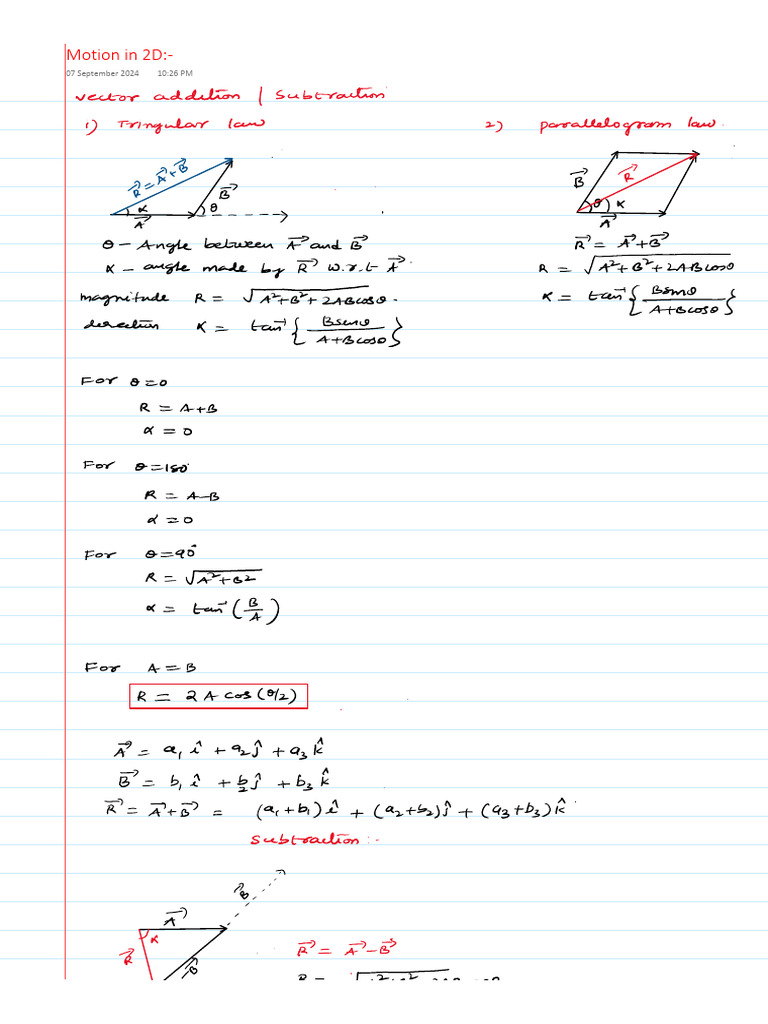 Motion in 2D:-
07 September 2024 10:26 PM
vector addition | Subtraction
1) Tringular law
R⃗ = A⃗ + B⃗
B⃗
α
θ
A⃗
θ – Angle between A⃗ and B⃗
α – angle made by R⃗ w.r.t A⃗.
magnitude R = √(A²+B²+2ABcosθ).
direction α = tan⁻¹{Bsinθ/(A+Bcosθ)}
2) Parallelogram law.
B⃗
R⃗
θ α
A⃗
R⃗ = A⃗+B⃗
R = √(A²+B²+2ABcosθ)
α = tan⁻¹{Bsinθ/(A+Bcosθ)}
For θ=0
R = A+B
α = 0
For θ=180°
R = A–B
α = 0
For θ=90°
R = √(A²+B²)
α = tan⁻¹(B/A)
For A = B
R = 2 A cos(θ/2)
A⃗ = a₁ î + a₂ ĵ + a₃ k̂
B⃗ = b₁ î + b₂ ĵ + b₃ k̂
R⃗ = A⃗+B⃗ = (a₁+b₁) î + (a₂+b₂) ĵ + (a₃+b₃) k̂
Subtraction :-
B⃗
A⃗
α
R⃗
-B⃗
R⃗ = A⃗–B⃗